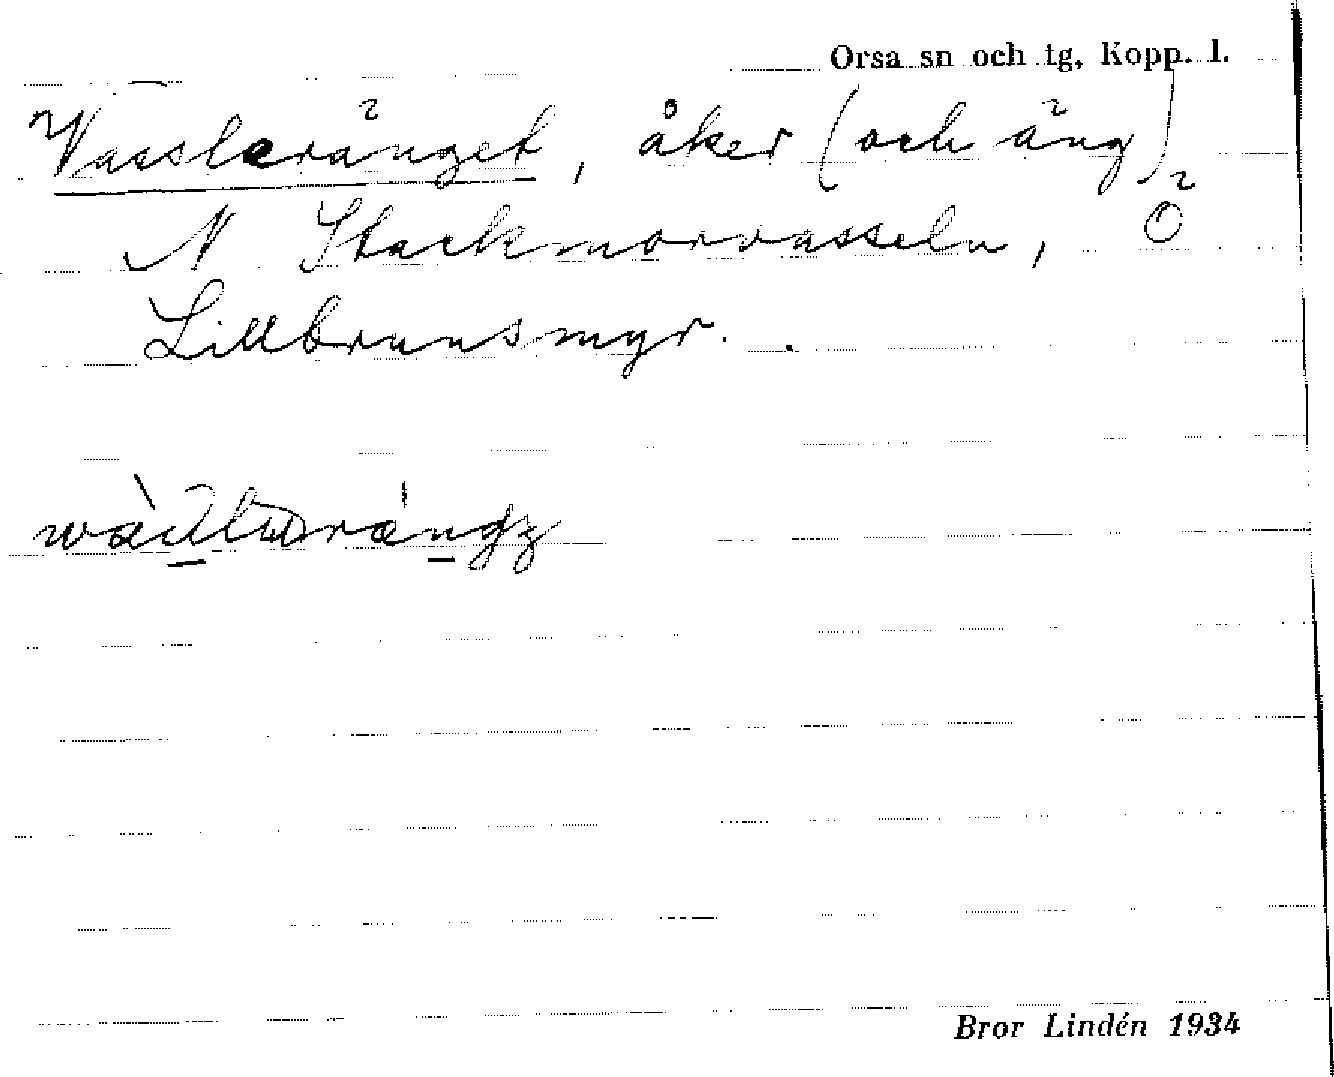 Orsa sn och tg, Kopp. l.
Vassleränget, åker (och äng)
N Stackmorvasseln, Ö
Lillbrunsmyr.
Bror Lindén 1934